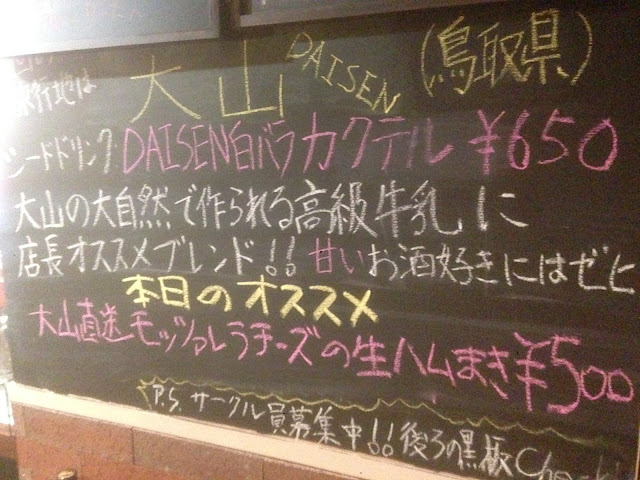 旅行地は 大山 DAISEN (鳥取県)
シードドリンク DAISEN白バラカクテル ¥650
大山の大自然で作られる高級牛乳に
店長オススメブレンド!! 甘いお酒好きにはゼヒ
本日のオススメ
大山直送モッツァレラチーズの生ハムまき¥500
P.S. サークル員募集中!! 後ろの黒板